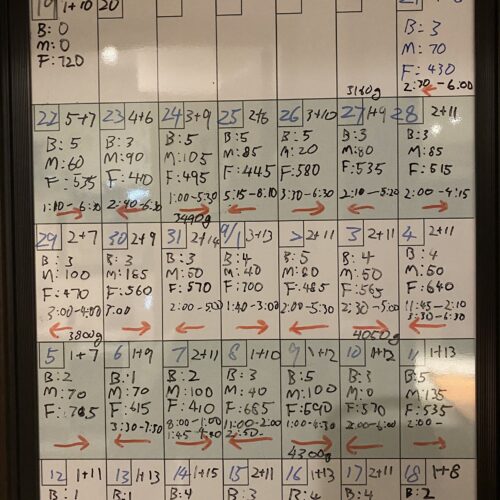 19 1+10 20
B: 0
M: 0
F: 720
B: 3
M: 70
F: 430
2:30 - 6:00
3180g
22 5+7 23 4+6 24 3+9 25 2+6 26 3+10 27 1+9 28 2+11
B: 5 B: 3 B: 5 B: 5 B: 5 B: 3 B: 3
M: 60 M: 90 M: 105 M: 85 M: 20 M: 80 M: 85
F: 535 F: 410 F: 495 F: 445 F: 580 F: 535 F: 515
1:00-5:30 5:15-8:10 3:30-6:30 2:10-5:20 2:00-4:15
3490g
29 2+7 30 2+9 31 2+14 9/1 3+13 2 2+11 3 2+11 4 2+11
B: 3 B: 3 B: 3 B: 4 B: 5 B: 4 B: 4
M: 100 M: 165 M: 50 M: 40 M: 80 M: 50 M: 50
F: 470 F: 560 F: 570 F: 700 F: 485 F: 565 F: 640
3:00-4:00 2:00-5:00 1:40-3:00 2:00-5:30 2:30-5:00 11:45-2:10
3:30-6:30
3800g 4050g
5 1+7 6 1+9 7 2+11 8 1+10 9 1+12 10 1+12 11 1+13
B: 2 B: 1 B: 2 B: 3 B: 5 B: 3 B: 5
M: 70 M: 70 M: 100 M: 40 M: 100 M: 0 M: 135
F: 615 F: 410 F: 685 F: 590 F: 570 F: 535
3:30-7:30 11:00-2:00 1:00-4:30 2:00-6:00 2:00-
1:45-4:00 2:50-
4300g
12 1+11 13 1+13 14 1+15 15 2+11 16 1+13 17 2+11 18 1+8
B: 1 B: 1 B: 4 B: 2